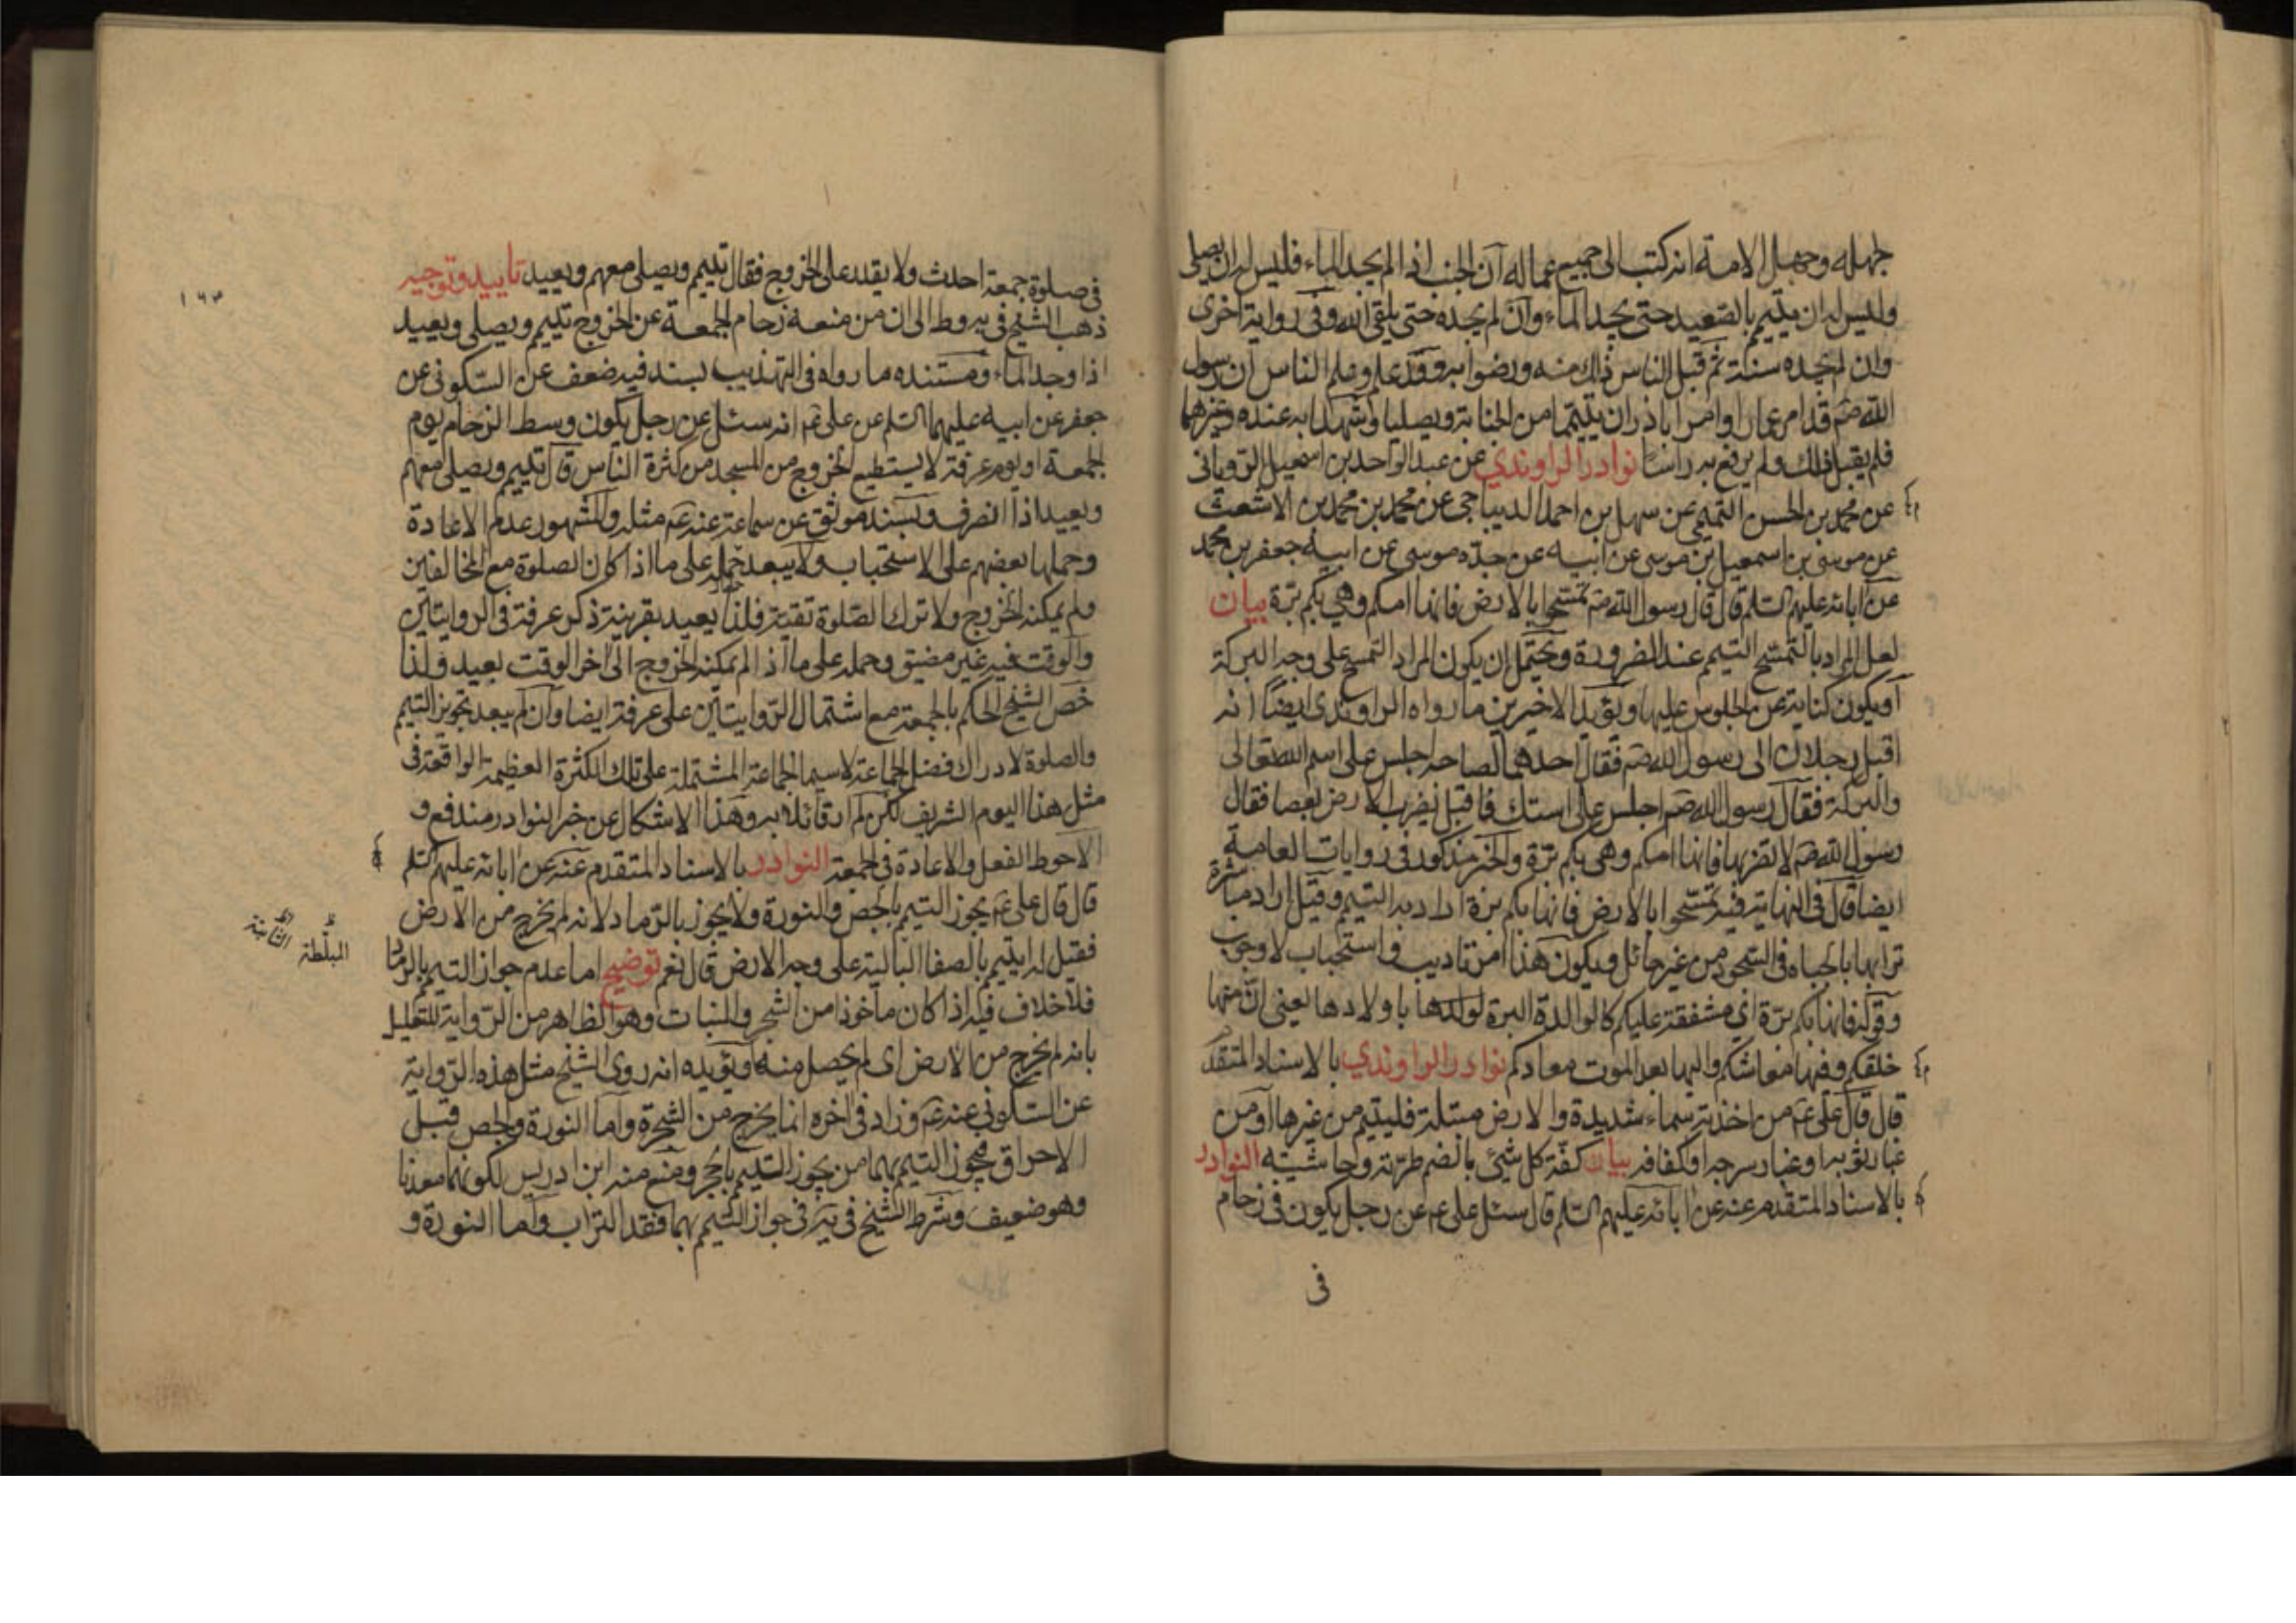 جهله وجهل الامة انه كتب الى جميع عماله ان الجنب اذا لم يجد الماء فليس له ان يصلى
وليس له ان يتيمم بالصعيد حتى يجد الماء وان لم يجده حتى يلقى الله وفى رواية اخرى
وان لم يجده سنة ثم قبل الناس ذلك منه ورضوا به وقد علم وعلم الناس ان رسول
الله صم قد امر عمارا وامر اباذر ان يتيمما من الجنابة ويصليا وشهدا به عنده وغيرهما
فلم يقبل ذلك ولم يرفع به راسا نوادر الراوندي عن عبد الواحد بن اسمعيل الرويانى
عن محمد بن الحسن التميمى عن سهل بن احمد الديباجى عن محمد بن محمد بن الاشعث
عن موسى بن اسمعيل بن موسى عن ابيه عن جده موسى عن ابيه جعفر بن محمد
عن ابائه عليهم السلم قال قال رسول الله صم تمسحوا بالارض فانها امكم وهى بكم برة بيان
لعل المراد بالتمسح التيمم عند الضرورة ويحتمل ان يكون المراد التمسح على وجه البركة
او يكون كناية عن الجلوس عليها ويؤيد الاخيرين ما رواه الراوندى ايضا انه
اقبل رجلان الى رسول الله صم فقال احدهما لصاحبه اجلس على اسم الله تعالى
والبركة فقال رسول الله صم اجلس على استك فاقبل يضرب الارض بعصا فقال
رسول الله صم لا تضربها فانها امكم وهى بكم برة والخبر مذكور فى روايات العامة
ايضا قال فى النهاية فيه تمسحوا بالارض فانها بكم برة اراد به التيمم وقيل اراد مباشرة
ترابها بالجباه فى السجود من غير حائل ويكون هذا امر تاديب واستحباب لا وجوب
وقوله فانها بكم برة اى مشفقة عليكم كالوالدة البرة لولدها باولادها يعنى ان منها
خلقكم وفيها معاشكم واليها بعد الموت معادكم نوادر الراوندي بالاسناد المتقدم
قال قال على عم من اخذته سماء شديدة والارض مبتلة فليتيمم من غيرها او من
غبار ثوبه او غبار سرجه او كفافه بيان كفة كل شئ بالضم طرته وحاشيته النوادر
بالاسناد المتقدم عنه عن ابائه عليهم السلم قال سئل على عم عن رجل يكون فى زحام
فى
١٦٣
فى صلوة جمعة احدث ولا يقدر على الخروج فقال تيمم ويصلى معهم ويعيد تاييد وتوجيه
ذهب الشيخ فى يه وط الى ان من منعه زحام الجمعة عن الخروج تيمم ويصلى ويعيد
اذا وجد الماء ومستنده ما رواه فى التهذيب بسند فيه ضعف عن السكونى عن
جعفر عن ابيه عليهما السلم عن على عم انه سئل عن رجل يكون وسط الزحام يوم
الجمعة او يوم عرفة لا يستطيع الخروج من المسجد من كثرة الناس قال تيمم ويصلى معهم
ويعيد اذا انصرف وبسند موثق عن سماعة عنه عم مثله والمشهور عدم الاعادة
وحملها بعضهم على الاستحباب ولا يبعد حمله على ما اذا كان الصلوة مع المخالفين
ولم يمكنه الخروج ولا ترك الصلوة تقية فلذا يعيد بقرينة ذكر عرفة فى الروايتين
والوقت فيه غير مضيق وحمله على ما اذا لم يمكنه الخروج الى اخر الوقت بعيد ولذا
خص الشيخ الحكم بالجمعة مع اشتمال الروايتين على عرفة ايضا وان لم يبعد تجويز التيمم
والصلوة لادراك فضل الجماعة لاسيما الجماعة المشتملة على تلك الكثرة العظيمة الواقعة فى
مثل هذا اليوم الشريف لكن لم ار قائلا به وهذا الاشكال عن خبر النوادر مندفع و
الاحوط الفعل والاعادة فى الجمعة النوادر بالاسناد المتقدم عنه عن ابائه عليهم السلم
قال قال على عم يجوز التيمم بالجص والنورة ولا يجوز بالرماد لانه لم يخرج من الارض
فقيل له ايتيمم بالصفا البالية على وجه الارض قال نعم توضيح اما عدم جواز التيمم بالرماد
فلا خلاف فيه اذا كان ماخوذا من الشجر والنبات وهو الظاهر من الرواية للتعليل
بانه لم يخرج من الارض اى لم يحصل منه ويؤيده انه روى الشيخ مثل هذه الرواية
عن السكونى عنه عم وزاد فى اخره انما يخرج من الشجرة واما النورة والجص قبل
الاحراق فجوز التيمم بهما من يجوز التيمم بالحجر ومنع منه ابن ادريس لكونهما معدنا
وهو ضعيف وشرط الشيخ فى يه فى جواز التيمم بهما فقد التراب واما النورة و